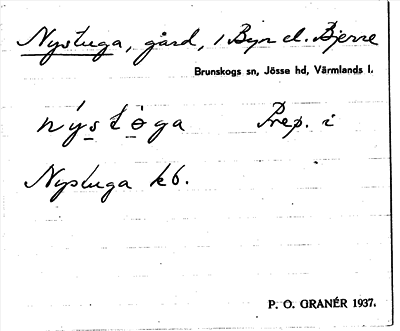 Nystuga, gård, i Byn el. Bjerre
Brunskogs sn, Jösse hd, Värmlands l.
nýstòga Prep. i
Nystuga kb.
P. O. GRANÉR 1937.